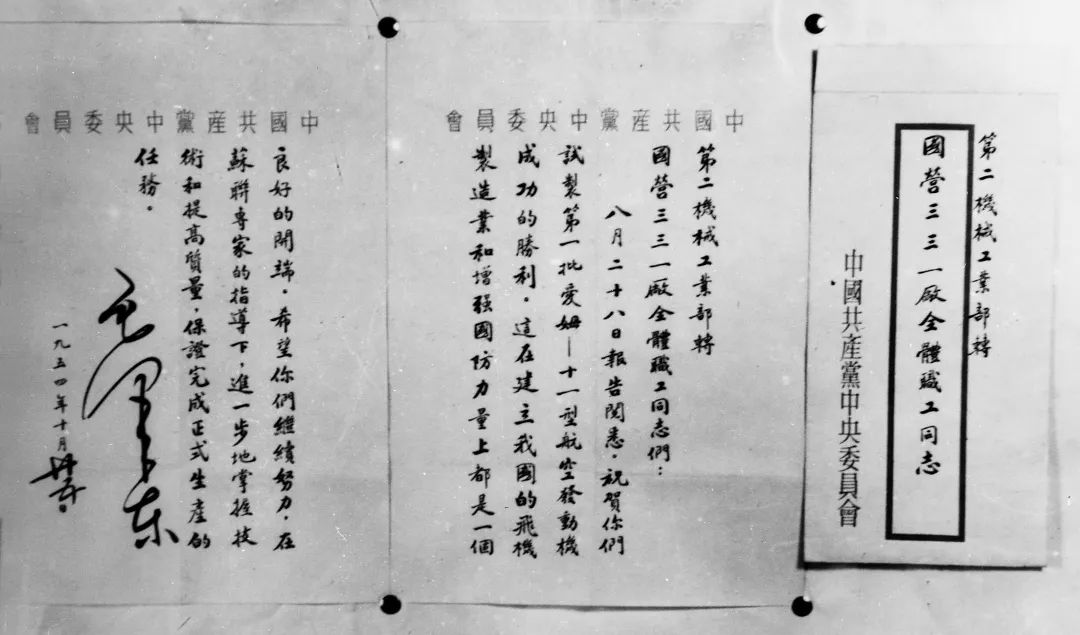 第二機械工業部轉
國營三三一廠全體職工同志
中國共產黨中央委員會
中國共產黨中央委員會
第二機械工業部轉
國營三三一廠全體職工同志們：
八月二十八日報告閱悉。祝賀你們
試製第一批愛姆—十一型航空發動機
成功的勝利。這在建立我國的飛機
製造業和增强國防力量上都是一個
中國共產黨中央委員會
良好的開端。希望你們繼續努力，在
蘇聯專家的指導下，進一步地掌握技
術和提高質量，保證完成正式生產的
任務。
毛澤東
一九五四年十月廿五日